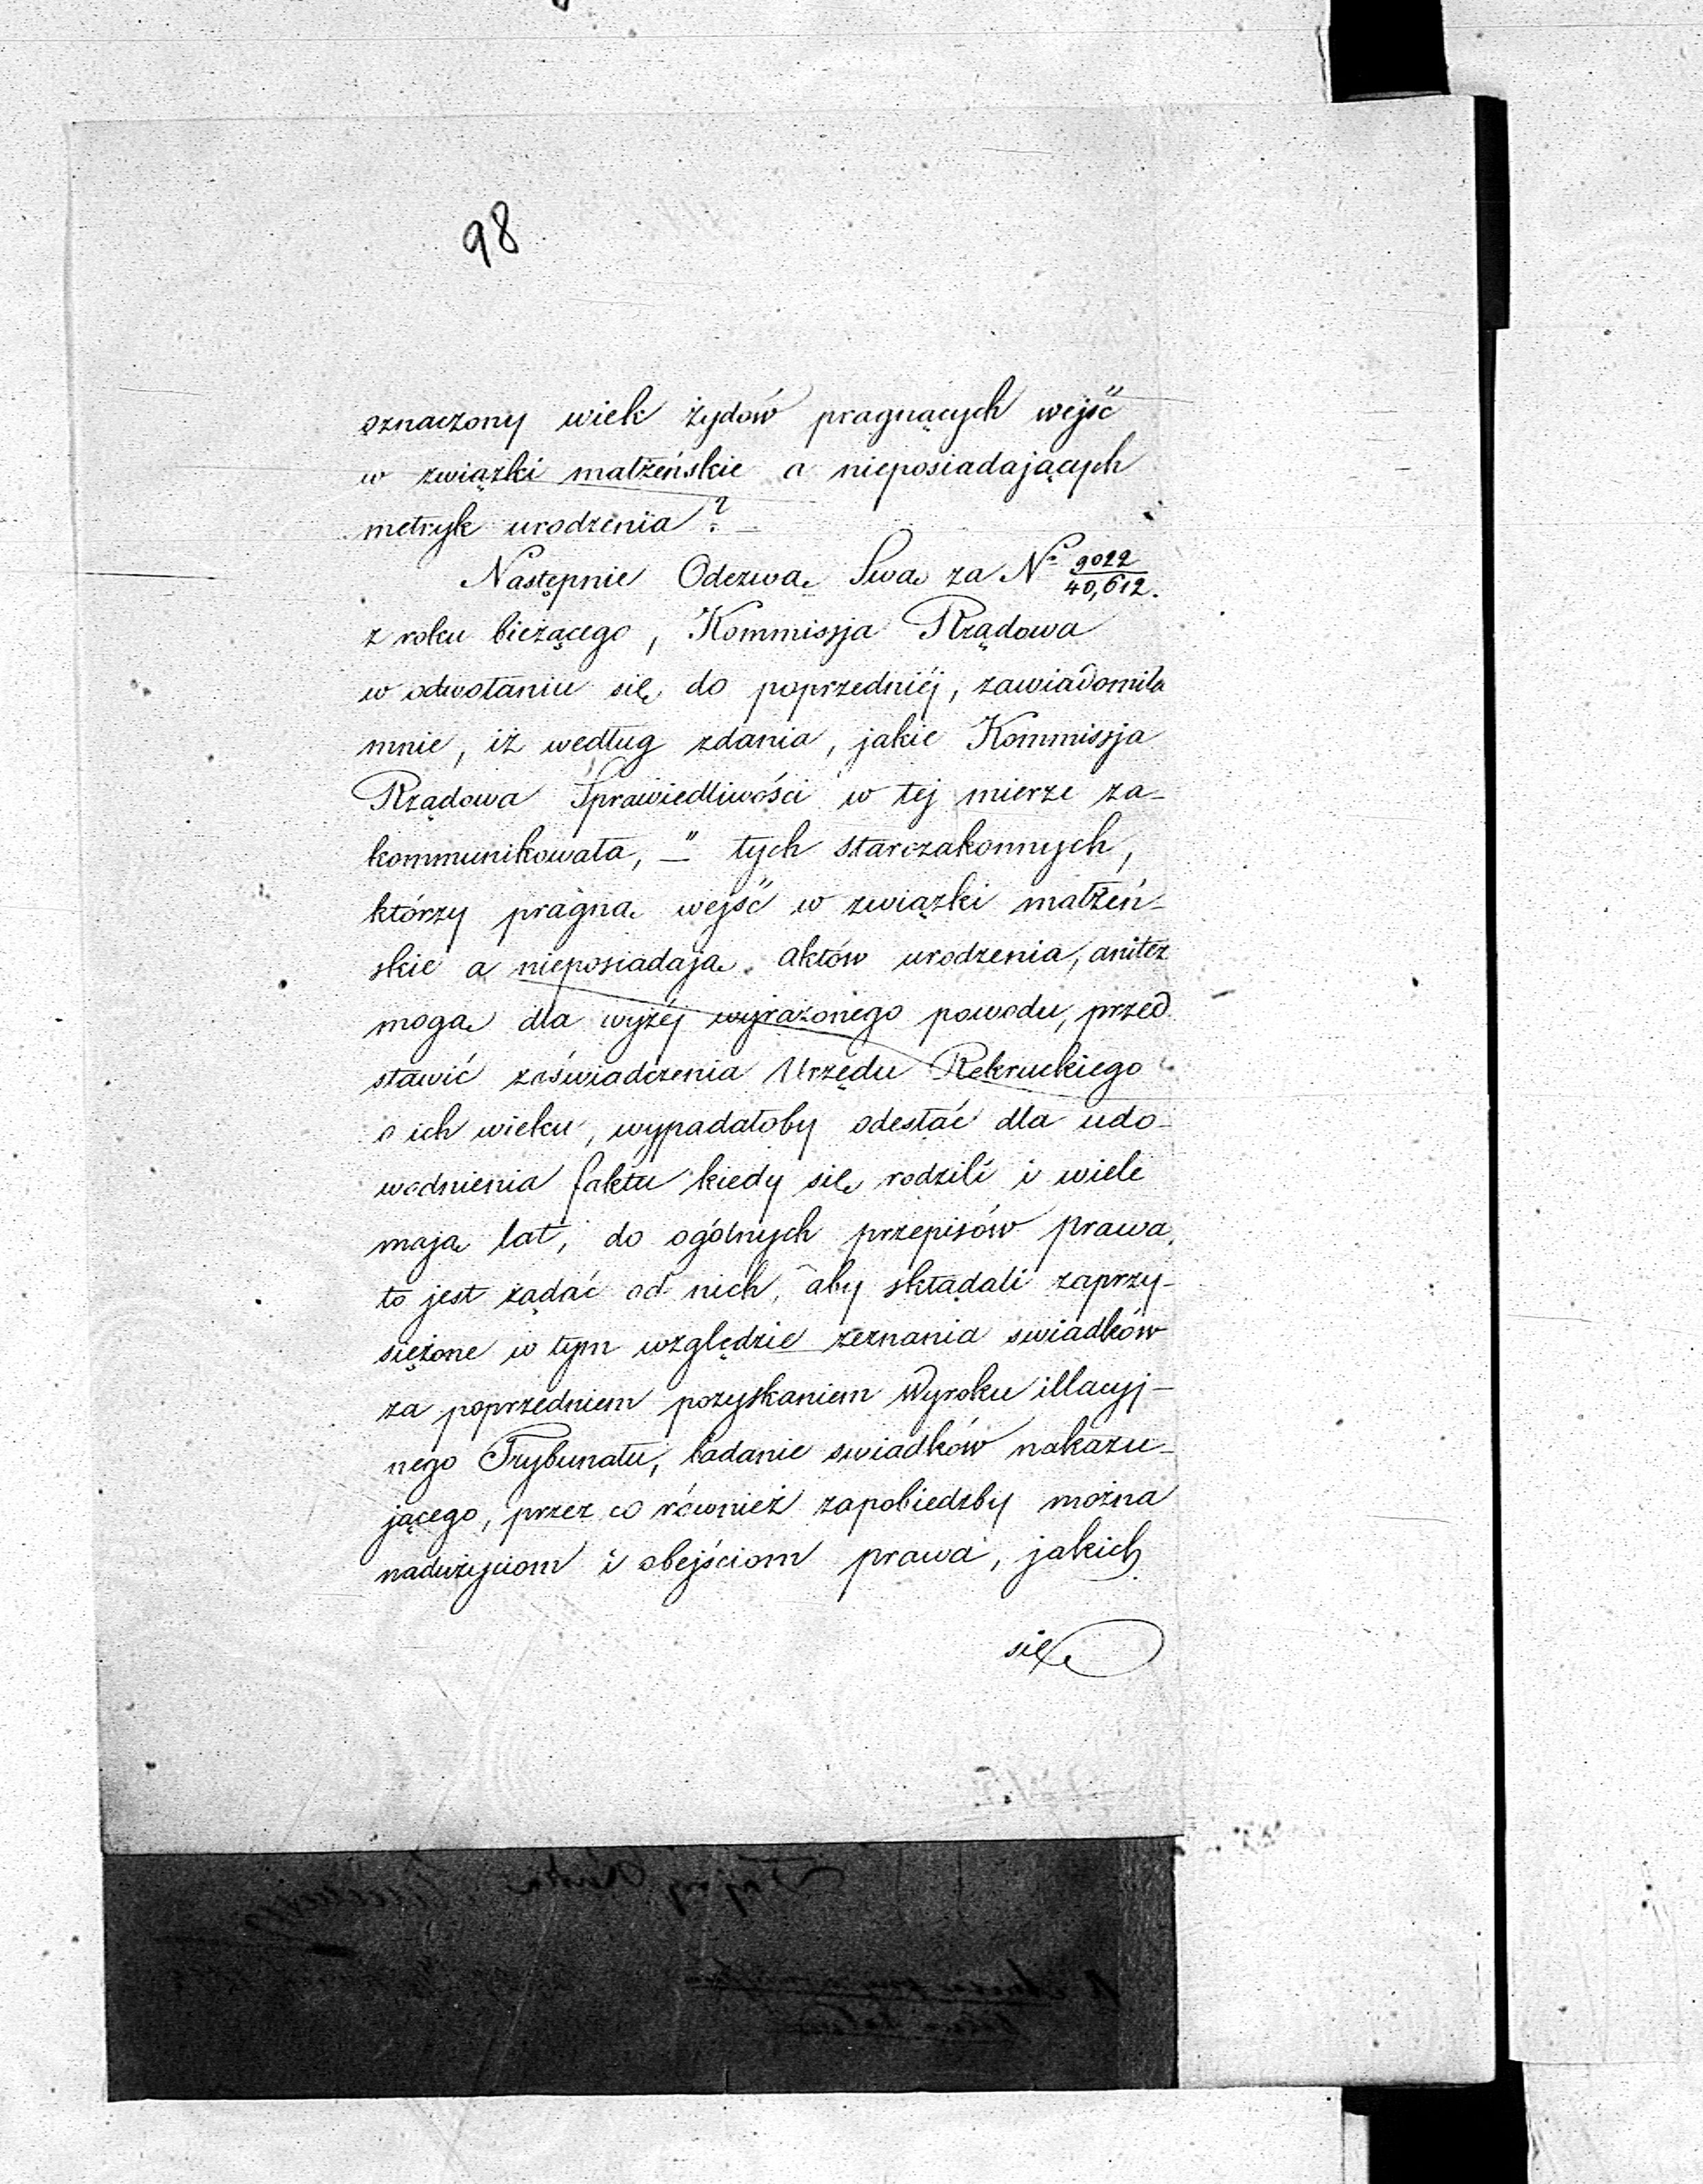 98
oznaczony wiek żydów pragnących wejść
w związki małżeńskie a nieposiadających
metryk urodzenia? –
Następnie Odezwą Swą za Nr 9022/40,612.
z roku bieżącego, Kommissja Rządowa
w odwołaniu się do poprzedniéj, zawiadomiła
mnie, iż według zdania, jakie Kommissja
Rządowa Sprawiedliwości w tej mierze za-
kommunikowała, – " tych starozakonnych,
którzy pragną wejść w związki małżeń-
skie a nieposiadają aktów urodzenia, aniteż
mogą dla wyżéj wyrażonego powodu, przed
stawić zaświadczenia Urzędu Rekruckiego
o ich wieku, wypadałoby odesłać dla udo-
wodnienia faktu kiedy się rodzili i wiele
mają lat, do ogólnych przepisów prawa,
to jest żądać od nich, aby składali zaprzy-
siężone w tym względzie zeznania swiadków
za poprzedniem pozyskaniem Wyroku illacyj-
nego Trybunału, badanie swiadków nakazu-
jącego, przez co również zapobiedzby można
nadużyciom i obejściom prawa, jakich
się